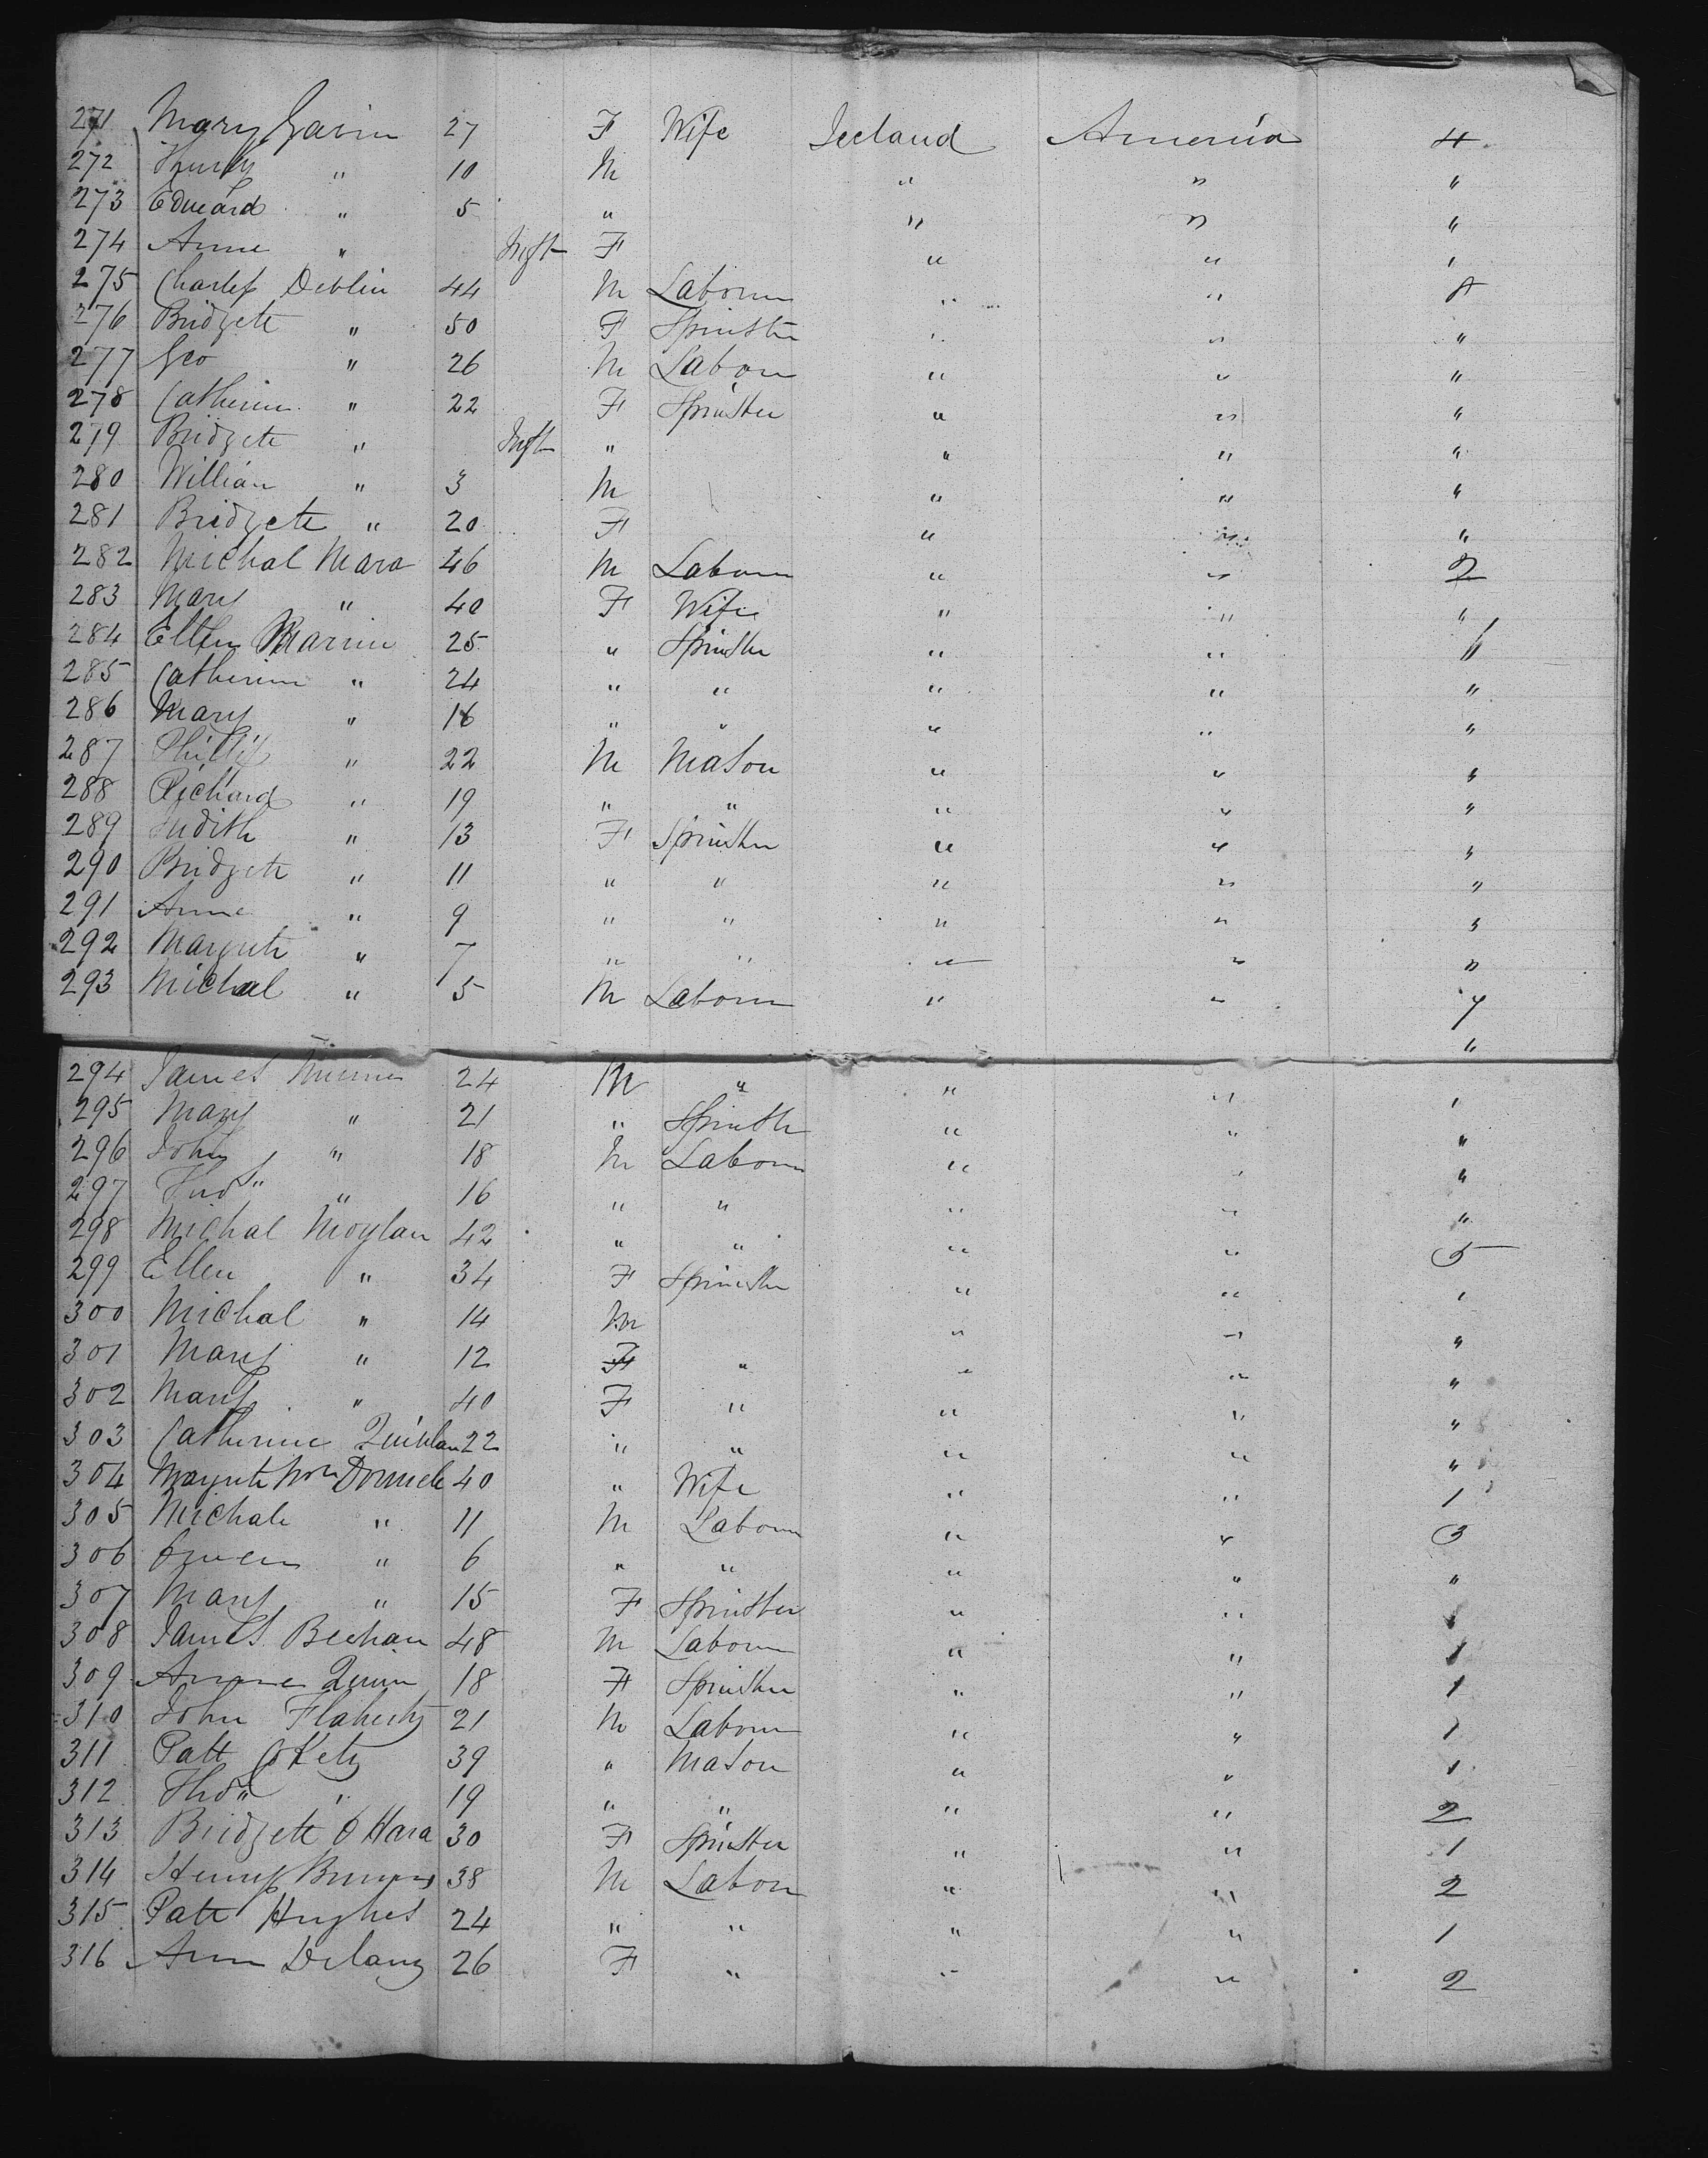 271 Mary Gavin 27 F Wife Ireland America 4
272 " 10 M " " "
273 Edward " 5 " " " "
274 Anne " Inft F " " "
275 Charles Devlin 44 M Labourer " "
276 Bridgett " 50 F Spinster " " "
277 Geo " 26 M Labour " " "
278 Catherine " 22 F Spinster " " "
279 Bridgett " Inft " " " "
280 William " 3 M " " "
281 Bridgett " 20 F " " "
282 Michal Mara 46 M Labourer " " 2
283 Mary " 40 F Wife " " "
284 Ellen 25 " Spinster " "
285 Catherine " 24 " " " " "
286 Mary " 16 " " " " "
287 Phillip " 22 M Mason " " "
288 Richard " 19 " " " " "
289 Judith " 13 F Spinster " " "
290 Bridgett " 11 " " " " "
291 Anne " 9 " " " " "
292 Margrett " 7 " " " " "
293 Michael " 5 M Labourer " "
"
294 James 24 M " " " "
295 Mary " 21 " Spinster " " "
296 John " 18 M Labourer " " "
297 Thos " 16 " " " " "
298 Michal Moylan 42 " " " " 5
299 Ellen " 34 F Spinster " " "
300 Michal " 14 M " " "
301 Mary " 12 F " " " "
302 Mary " 40 F " " " "
303 Catherine Quinlan 22 " " " " "
304 Margrett 40 " Wife " " 1
305 Michale " 11 M Labourer " " 3
306 Owen " 6 " " " " "
307 Mary " 15 F Spinster " " 1
308 James Beehan 48 M Labourer " " 1
309 Anne Quinn 18 F Spinster " " 1
310 John Flaherty 21 M Labourer " " 1
311 Patt 39 " Mason " " 1
312 Thos " 19 " " " " 2
313 Bridgett O Hara 30 F Spinster " " 1
314 Henry 38 M Labour " " 2
315 Patt Hughes 24 " " " " 1
316 Ann Delany 26 F " " " 2